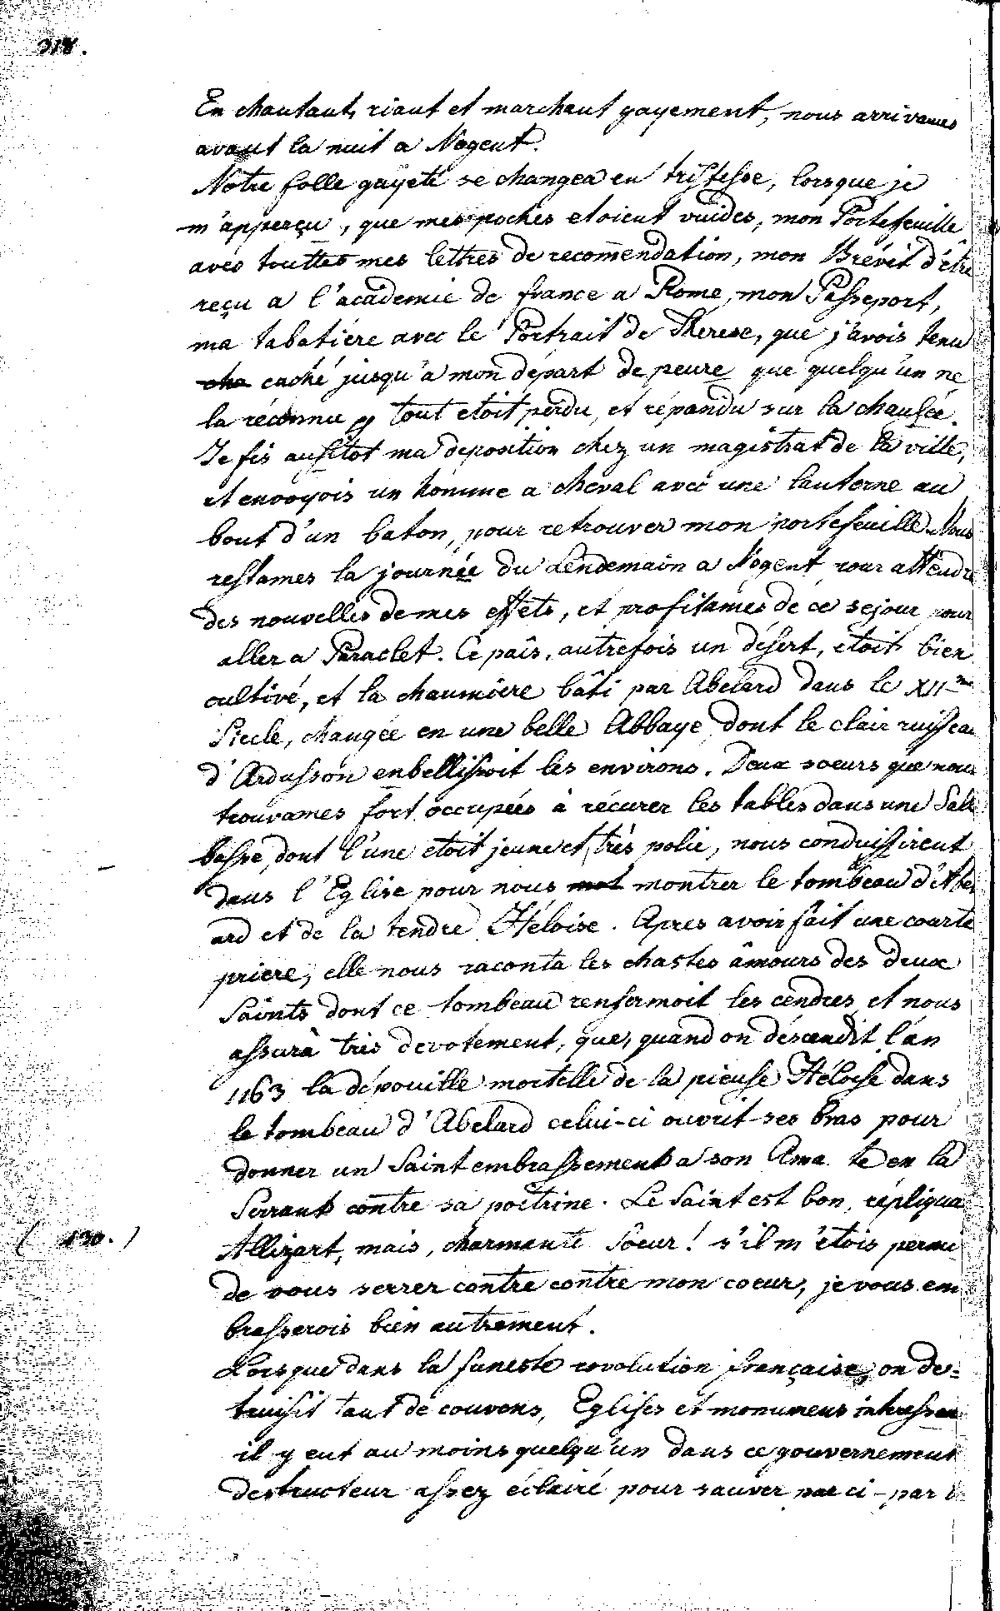 318.
En chantant, riant et marchant gayement, nous arrivames
avant la nuit a Nogent.
Notre folle gayeté se changea en tristesse, lorsque je
m'apperçu, que mes poches etoient vuides, mon Portefeuille
avec touttes mes lettres de recomendation, mon Brévét d'étre
reçu a l'académie de france a Rome, mon Passeport,
ma tabatiére avec le Portrait de Therese, que j'avois tenu
caché jusqu'a mon départ de peure que quelqu'un ne
la réconnu, tout etoit perdu, et répandu sur la chaussée.
Je fis ausitot ma deposition chez un magistrat de la ville,
et envoyois un homme a cheval avec une lanterne au
bout d'un baton, pour retrouver mon portefeuille. Nous
restames la journée du Lendemain a Nogent pour attendre
des nouvelles de mes effets, et profitames de ce sejour pour
aller a Paraclet. Ce païs, autrefois un désert, etoit bien
cultivé, et la chaumiére bâti par Abelard dans le XII me
Siecle, changée en une belle Abbaye, dont le clair ruisseau
d'Ardusson enbellissoit les environs. Deux soeurs que nous
trouvames fort occupées à récurer les tables dans une Salle
basse, dont l'une etoit jeune et trés polie, nous conduissirent
dans l'Eglise pour nous mot montrer le tombeau d'Abel
ard et de la tendre Héloise. Apres avoir fait une courte
priere, elle nous raconta les chastes amours des deux
Saints dont ce tombeau renfermoit les cendres, et nous
assurà trés devotement, que, quand on descendit l'an
1163 la dépouille mortelle de la pieuse Héloise dans
le tombeau d'Abelard celui-ci ouvrit ses bras pour
donner un Saint embrassement a son Ama te en la
Serrant contre sa poitrine. Le Saint est bon, répliqua
( 130. )
Allizart, mais, charmante Soeur! s'il m'étois permi
de vous serrer contre contre mon coeur, je vous em
brasserois bien autrement.
Lorsque dans la funeste revolution française, on de=
truisit tant de couvens, Eglises et monumens intressan
il y eut au moins quelqu'un dans ce gouvernement
destructeur assez éclairé pour sauver par ci - par